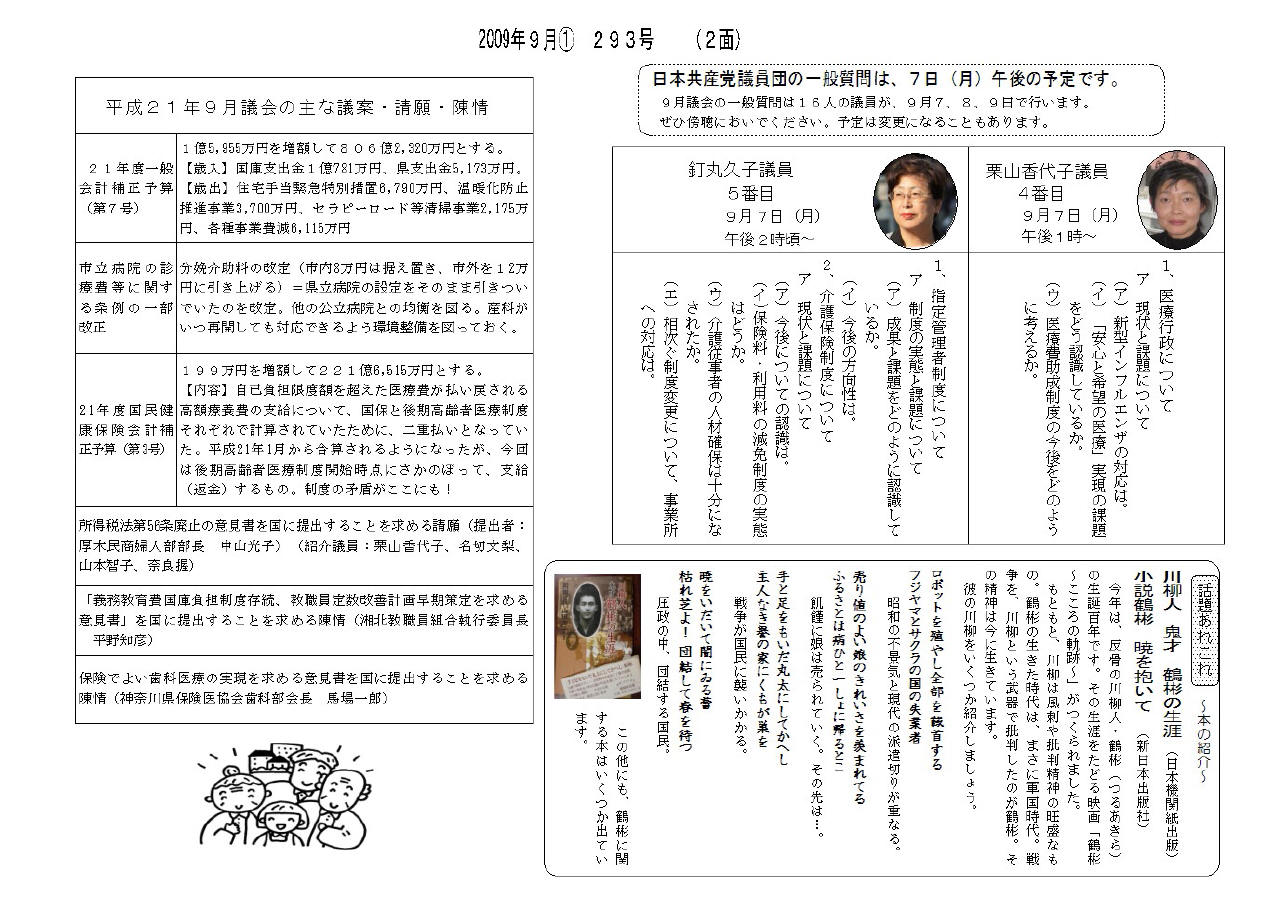 2009年9月① 293号 (2面)
平成21年9月議会の主な議案・請願・陳情
21年度一般
会計補正予算
(第7号)
1億5,955万円を増額して806億2,320万円とする。
【歳入】国庫支出金1億781万円、県支出金5,173万円。
【歳出】住宅手当緊急特別措置6,790万円、温暖化防止
推進事業3,700万円、セラピーロード等清掃事業2,175万
円、各種事業費減6,115万円
市立病院の診
療費等に関す
る条例の一部
改正
分娩介助料の改定(市内8万円は据え置き、市外を12万
円に引き上げる)=県立病院の設定をそのまま引きつい
でいたのを改定。他の公立病院との均衡を図る。産科が
いつ再開しても対応できるよう環境整備を図っておく。
21年度国民健
康保険会計補
正予算(第3号)
199万円を増額して221億6,515万円とする。
【内容】自己負担限度額を超えた医療費が払い戻される
高額療養費の支給について、国保と後期高齢者医療制度
それぞれで計算されていたために、二重払いとなってい
た。平成21年1月から合算されるようになったが、今回
は後期高齢者医療制度開始時点にさかのぼって、支給
(返金)するもの。制度の矛盾がここにも!
所得税法第56条廃止の意見書を国に提出することを求める請願(提出者:
厚木民商婦人部部長 中山光子)(紹介議員:栗山香代子、名切文梨、
山本智子、奈良握)
「義務教育費国庫負担制度存続、教職員定数改善計画早期策定を求める
意見書」を国に提出することを求める陳情(湘北教職員組合執行委員長
平野知彦)
保険でよい歯科医療の実現を求める意見書を国に提出することを求める
陳情(神奈川県保険医協会歯科部会長 馬場一郎)
日本共産党議員団の一般質問は、7日(月)午後の予定です。
9月議会の一般質問は16人の議員が、9月7、8、9日で行います。
ぜひ傍聴においでください。予定は変更になることもあります。
栗山香代子議員
4番目
9月7日(月)
午後1時~
1、医療行政について
ア 現状と課題について
(ア)新型インフルエンザの対応は。
(イ)「安心と希望の医療」実現の課題
をどう認識しているか。
(ウ)医療費助成制度の今後をどのよう
に考えるか。
釘丸久子議員
5番目
9月7日(月)
午後2時頃~
1、指定管理者制度について
ア 制度の実態と課題について
(ア)成果と課題をどのように認識して
いるか。
(イ)今後の方向性は。
2、介護保険制度について
ア 現状と課題について
(ア)今後についての認識は。
(イ)保険料・利用料の減免制度の実態
はどうか。
(ウ)介護従事者の人材確保は十分にな
されたか。
(エ)相次ぐ制度変更について、事業所
への対応は。
話題あれこれ ~本の紹介~
川柳人 鬼才 鶴彬の生涯(日本機関紙出版)
小説鶴彬 暁を抱いて(新日本出版社)
今年は、反骨の川柳人・鶴彬(つるあきら)
の生誕百年です。その生涯をたどる映画「鶴彬
~こころの軌跡~」がつくられました。
もともと、川柳は風刺や批判精神の旺盛なも
の。鶴彬の生きた時代は、まさに軍国時代。戦
争を、川柳という武器で批判したのが鶴彬。そ
の精神は今に生きています。
彼の川柳をいくつか紹介しましょう。
ロボットを殖やし全部を馘首する
フジヤマとサクラの国の失業者
昭和の不景気と現代の派遣切りが重なる。
売り値のよい娘のきれいさを羨まれてる
ふるさとは病ひと一しょに帰るとこ
飢饉に娘は売られていく。その先は…。
手と足をもいだ丸太にしてかへし
主人なき誉の家にくもが巣を
戦争が国民に襲いかかる。
暁をいだいて闇にゐる蕾
枯れ芝よ!団結して春を待つ
圧政の中、団結する国民。
この他にも、鶴彬に関
する本はいくつか出てい
ます。